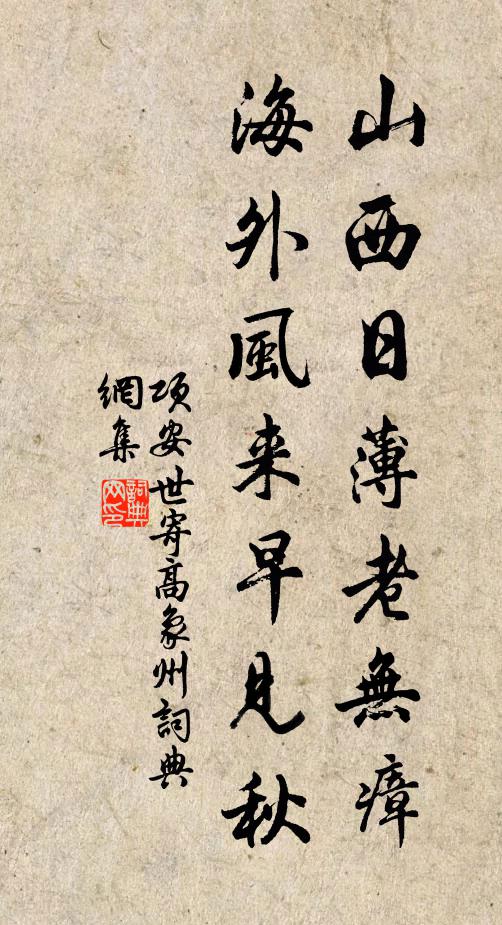 山西日薄老無瘴
海外風来早見秋
项安世寄高象州詞典
網集
詞典
网印